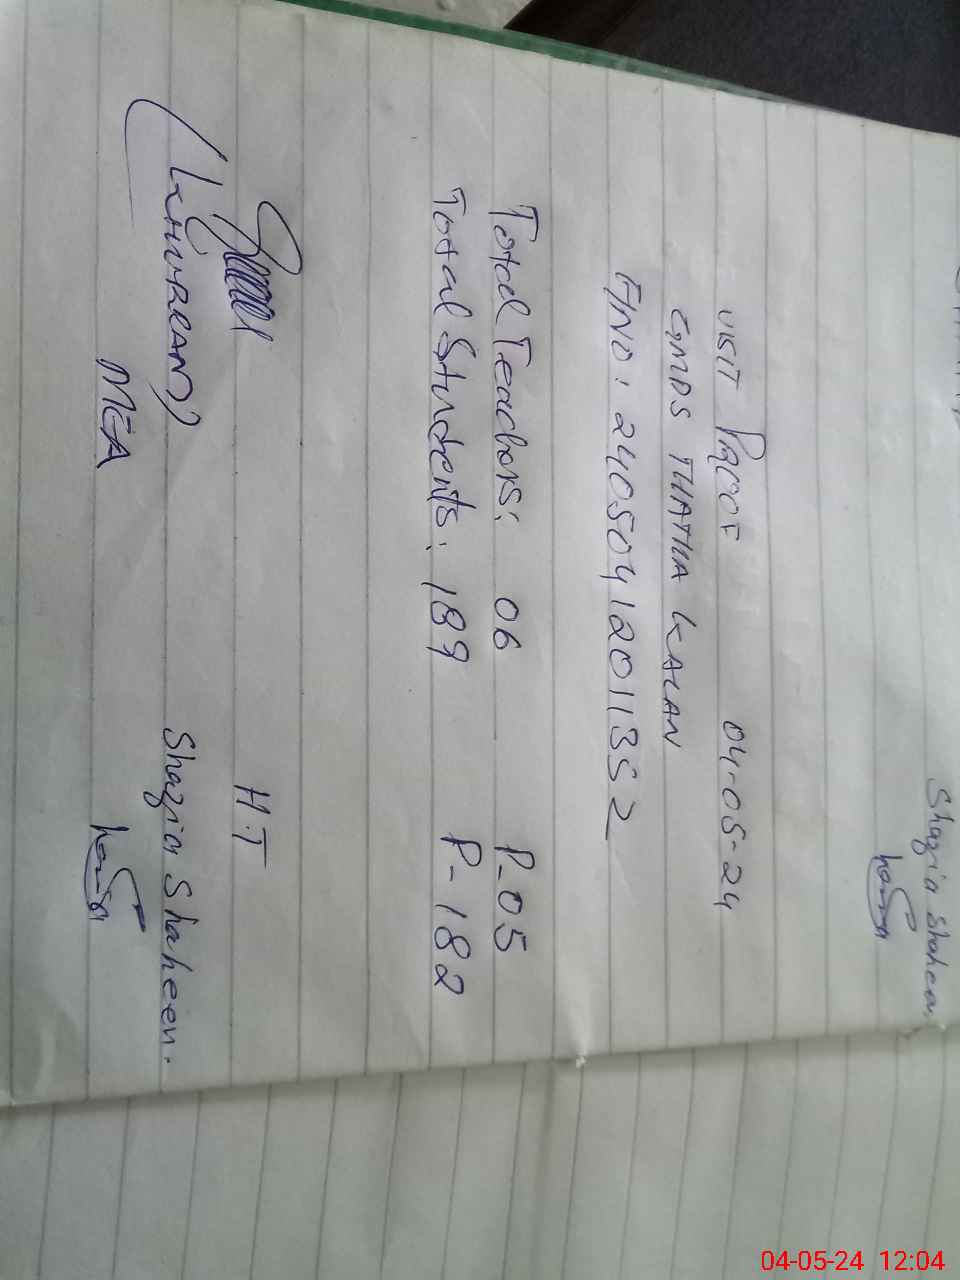 Shazia Shaheen.
VISIT PROOF 04-05-24
GMPS THATHA KALAN
A/NO: 24050412011352
Total Teachers: 06 P-05
Total Students: 189 P-182
H.T
Shazia Shaheen.
MEA
04-05-24 12:04